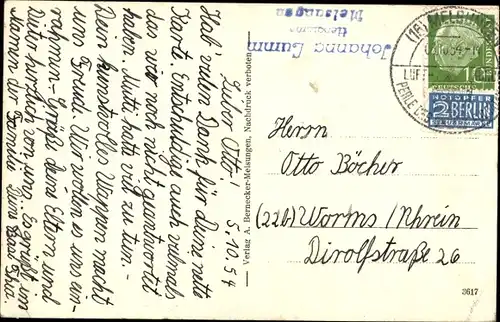 Lieber Otto! 5.10.54
Hab' vielen Dank für Deine nette
Karte. Entschuldige auch vielmals
das wir noch nicht geantwortet
haben. Mutti hatte viel zu tun.
Dein kunstvolles Wappen macht
uns Freud. Wir wollen es uns ein-
rahmen. Grüße deine Eltern und
Dieter herzlich von uns. Es grüßt im
Namen der Familie Lumm
Verlag A. Bernecker-Melsungen, Nachdruck verboten
Johanna Lumm
Melsungen
MELSUNGEN
NOTOPFER
2 BERLIN
STEUERMARKE
Herrn
Otto Böcher
(22b) Worms/Rhein
Dirolfstraße 26
3617